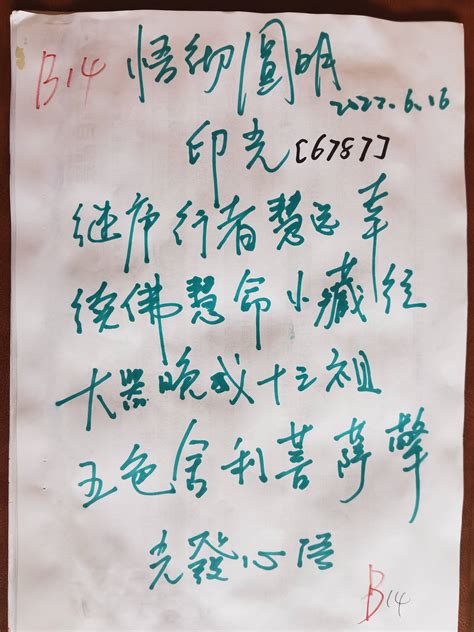 B14 悟彻圓明
2022.6.16
印光 [6787]
继庐行者慧远牵
续佛慧命小藏经
大器晚成十三祖
五色舍利菩萨擎
光發心语
B14